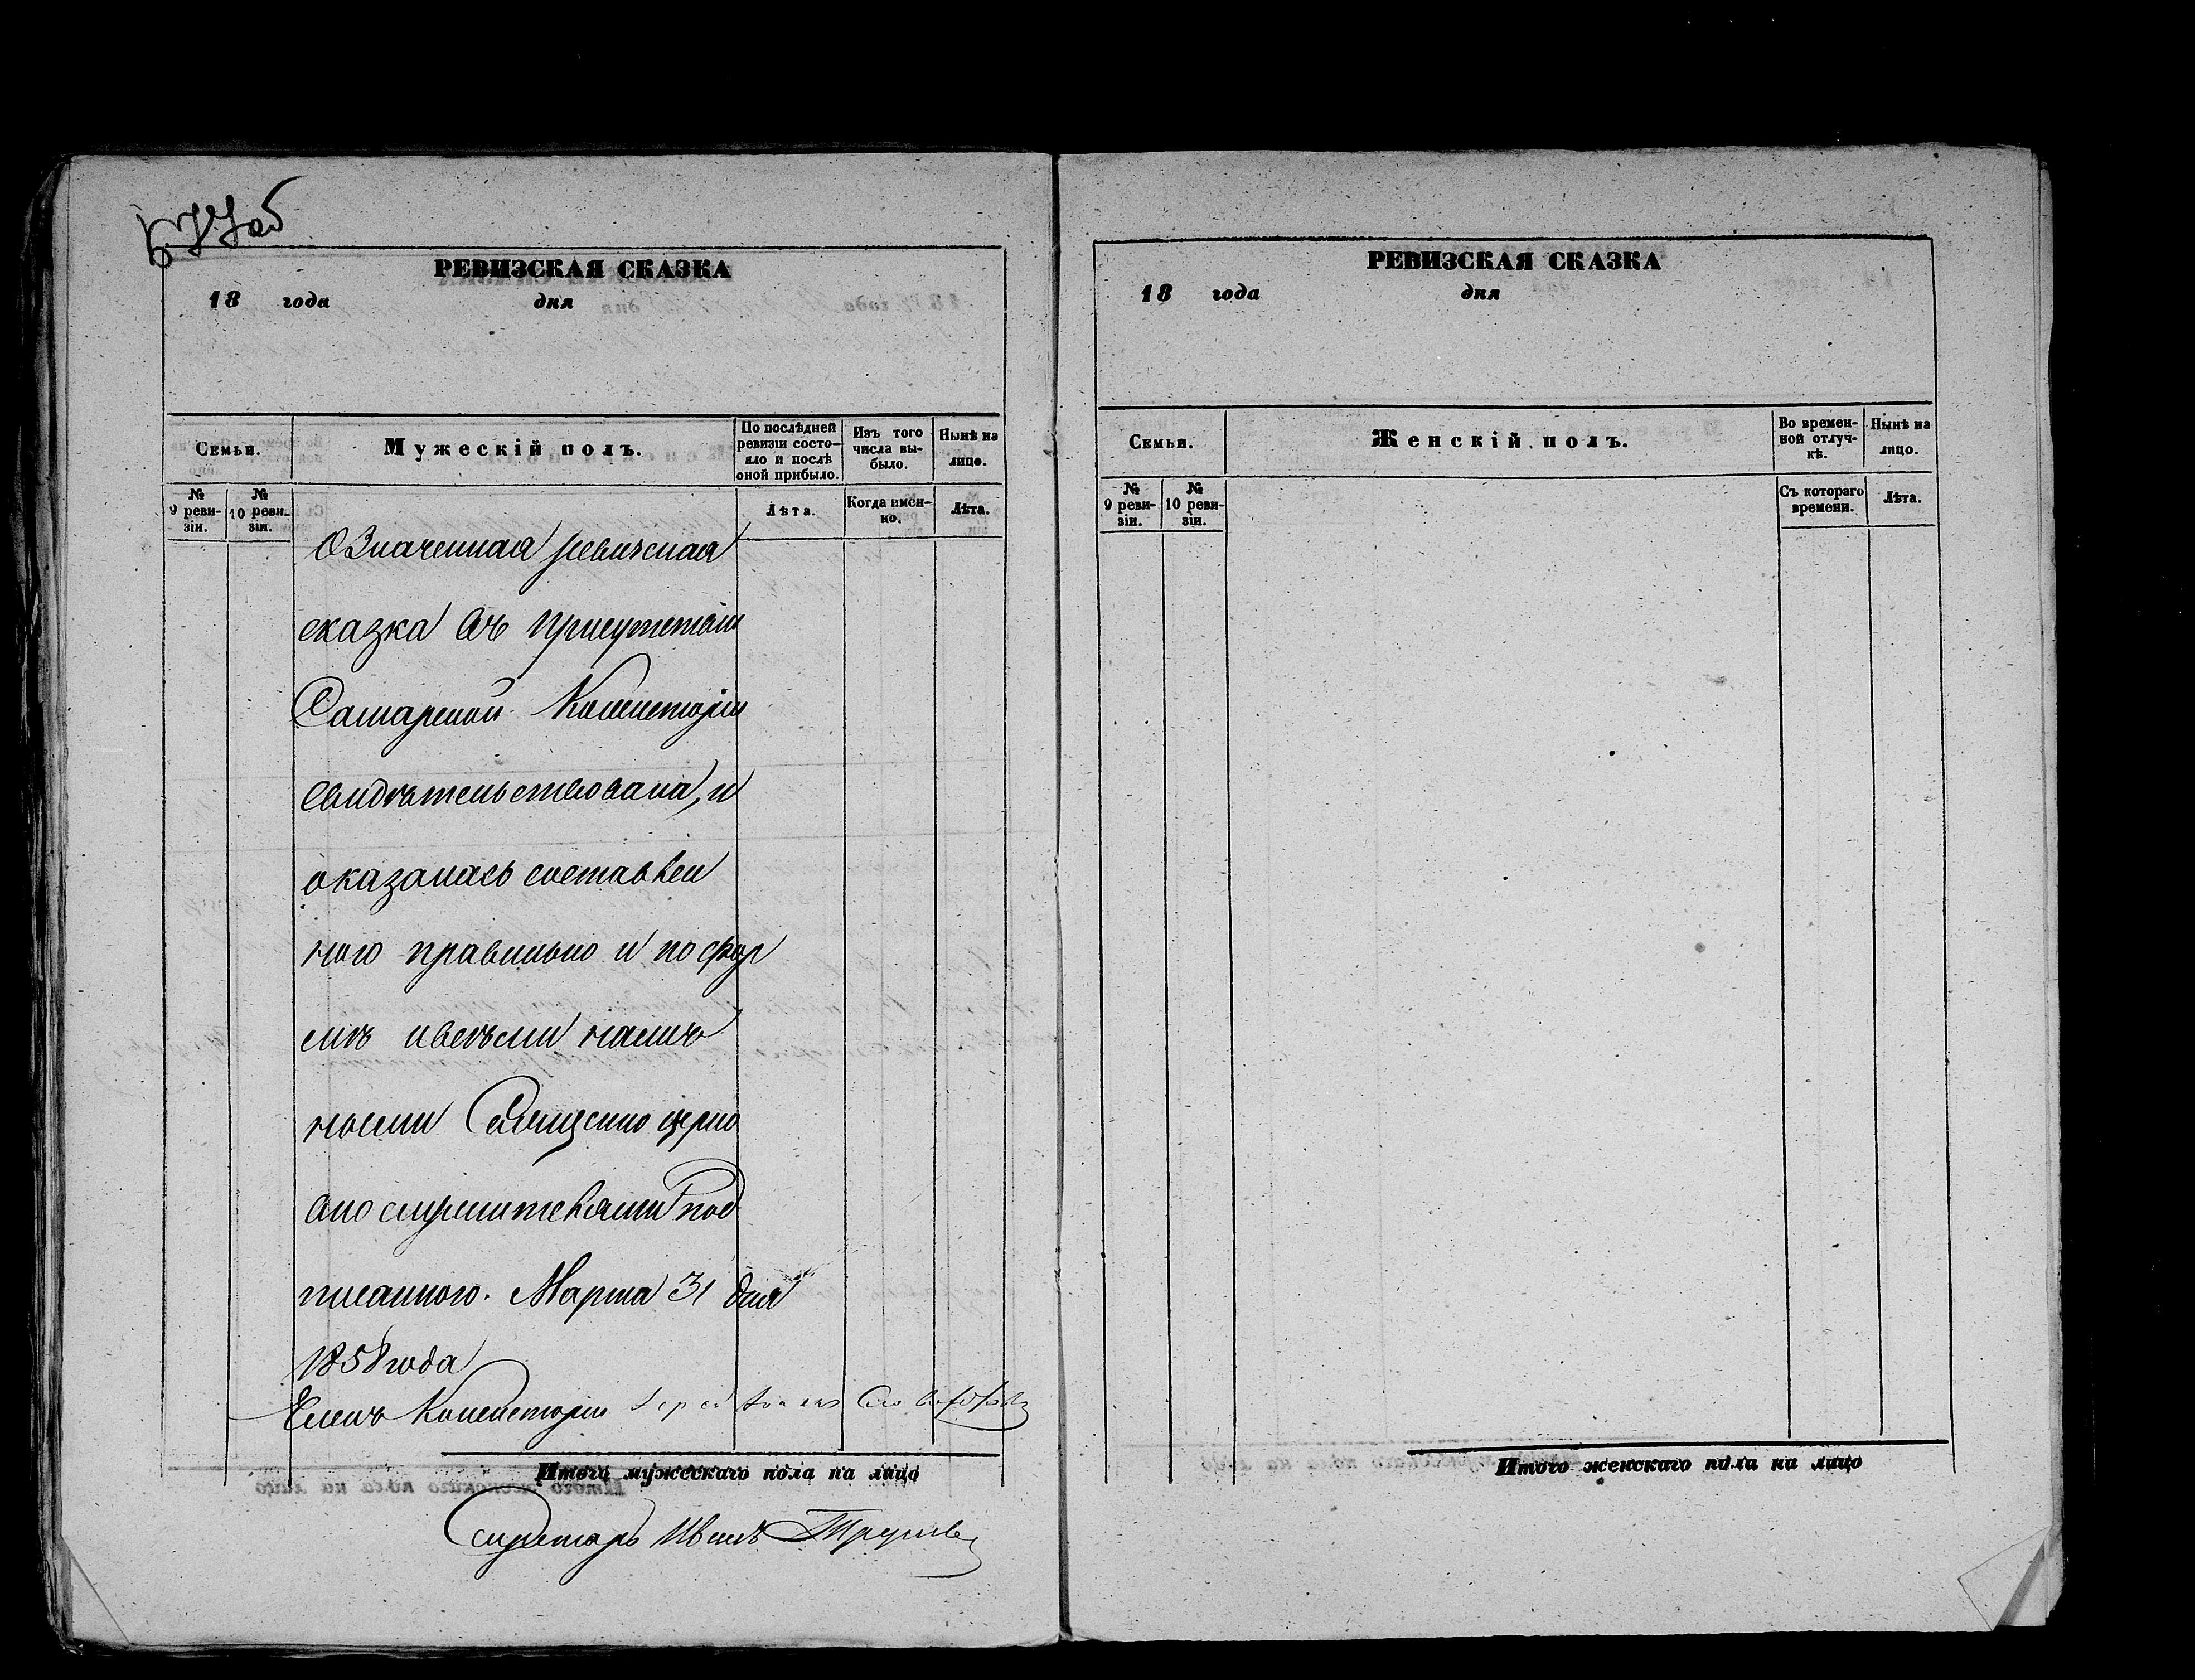 677 об
РЕВИЗСКАЯ СКАЗКА
18 года дня
Семьи.
Мужескій полъ.
По послѣдней ревизіи состо-
яло и послѣ оной прибыло.
Изъ того числа вы-
было.
Нынѣ на лицо.
№ 9 реви-
зіи.
№ 10 реви-
зіи.
Лѣта.
Когда имен-
но.
Лѣта.
Означенная ревизская
сказка въ присутствіи
Самарской Консисторіи
свидѣтельствована, и
оказалась составлен
ною правильно и по фор
мѣ и всѣми налич
ными Священно церко
вно служителями под
писанною. Марта 31 дня
1858 года
Членъ Консисторіи
Итого мужескаго пола на лицо
Секретарь Иванъ
РЕВИЗСКАЯ СКАЗКА
18 года дня
Семьи.
Женскій полъ.
Во времен-
ной отлуч-
кѣ.
Нынѣ на лицо.
№ 9 реви-
зіи.
№ 10 реви-
зіи.
Съ котораго времени.
Лѣта.
Итого женскаго пола на лицо